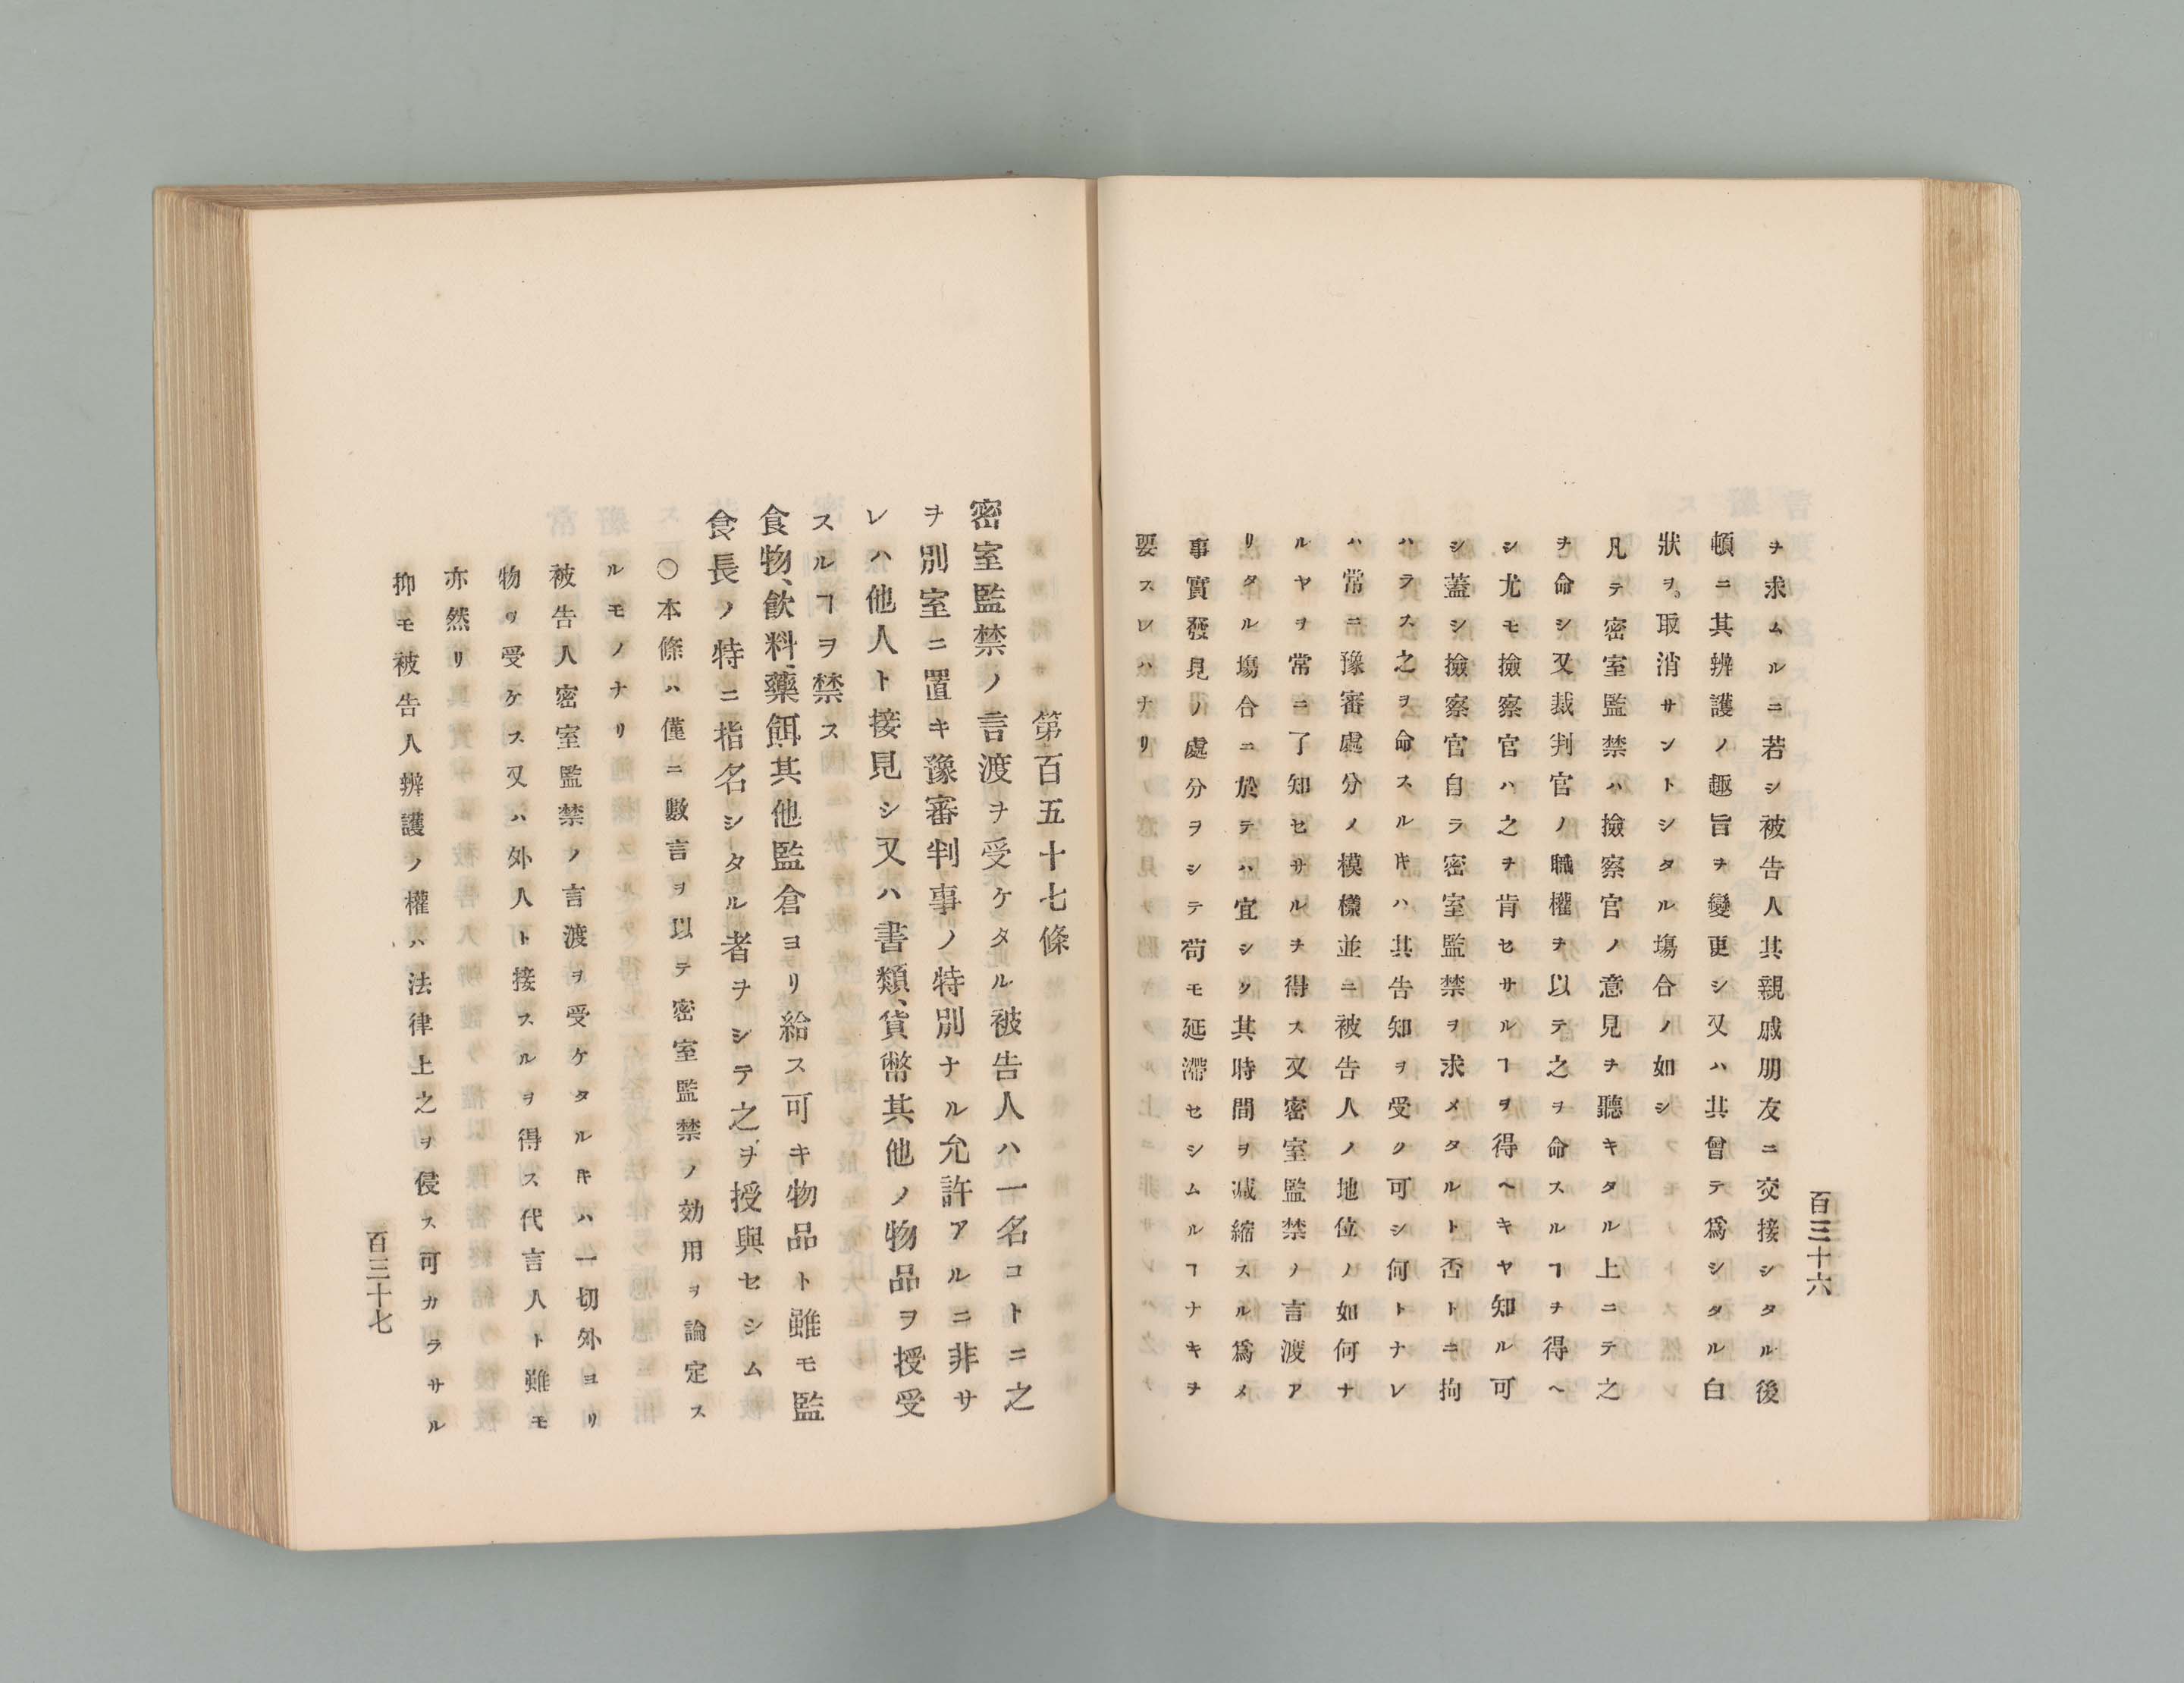 百三十六
ヲ求ムルニ若シ被告人其親戚朋友ニ交接シタル後
頓ニ其辨護ノ趣旨ヲ變更シ又ハ其曾テ爲シタル白
狀ヲ。取消サントシタル塲合ノ如シ
凡テ密室監禁ハ撿察官ノ意見ヲ聽キタル上ニテ之
ヲ命シ又裁判官ノ職權ヲ以テ之ヲ命スルヿヲ得ヘ
シ尤モ撿察官ハ之ヲ肯セサルヿヲ得ヘキヤ知ル可
シ蓋シ撿察官自ラ密室監禁ヲ求メタルト否トニ拘
ハラス之ヲ命スルキハ其告知ヲ受ク可シ何トナレ
ハ常ニ豫審處分ノ模樣並ニ被告人ノ地位ノ如何ナ
ルヤヲ常ニ了知セサルヲ得ス又密室監禁ノ言渡ア
リタル塲合ニ於テハ宜シク其時間ヲ减縮スル爲メ
事實發見ノ處分ヲシテ苟モ延滯セシムルヿナキヲ
要スレハナリ
第百五十七條
密室監禁ノ言渡ヲ受ケタル被告人ハ一名コトニ之
ヲ別室ニ置キ豫審判事ノ特別ナル允許アルニ非サ
レハ他人ト接見シ又ハ書類、貨幣其他ノ物品ヲ授受
スルヿヲ禁ス
食物、飮料、藥餌其他監倉ヨリ給ス可キ物品ト雖モ監
食長ノ特ニ指名シタル者ヲシテ之ヲ授與セシム
○本條ハ僅ニ數言ヲ以テ密室監禁ノ効用ヲ論定ス
ルモノナリ
被告人密室監禁ノ言渡ヲ受ケタルキハ一切外ヨリ
物ヲ受ケス又ハ外人ト接スルヲ得ス代言人ト雖モ
亦然リ
抑モ被告人辨護ノ權ハ法律上之ヲ侵ス可カラサル
百三十七